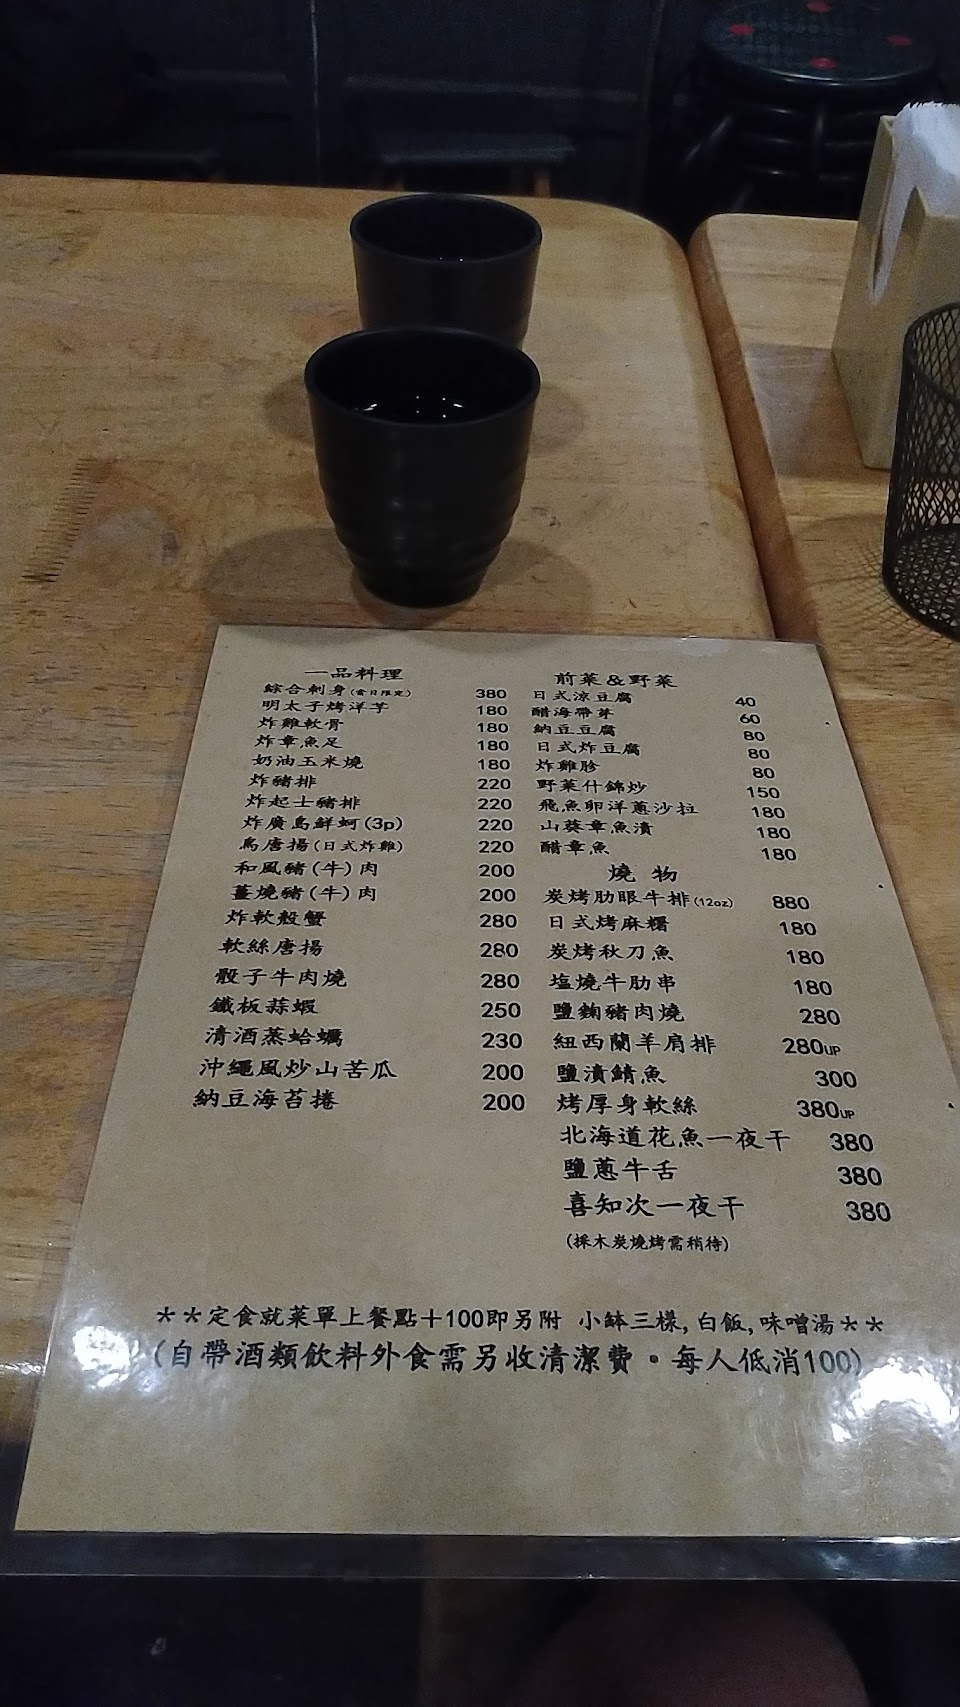 一品料理
綜合刺身(當日限定) 380
明太子烤洋芋 180
炸雞軟骨 180
炸章魚足 180
奶油玉米燒 180
炸豬排 220
炸起士豬排 220
炸廣島鮮蚵(3p) 220
鳥唐揚(日式炸雞) 220
和風豬(牛)肉 200
薑燒豬(牛)肉 200
炸軟殼蟹 280
軟絲唐揚 280
骰子牛肉燒 280
鐵板蒜蝦 250
清酒蒸蛤蠣 230
沖繩風炒山苦瓜 200
納豆海苔捲 200
前菜&野菜
日式涼豆腐 40
醋海帶芽 60
納豆豆腐 80
日式炸豆腐 80
炸雞胗 80
野菜什錦炒 150
飛魚卵洋蔥沙拉 180
山葵章魚漬 180
醋章魚 180
燒 物
炭烤肋眼牛排(12oz) 880
日式烤麻糬 180
炭烤秋刀魚 180
塩燒牛肋串 180
鹽麴豬肉燒 280
紐西蘭羊肩排 280UP
鹽漬鯖魚 300
烤厚身軟絲 380UP
北海道花魚一夜干 380
鹽蔥牛舌 380
喜知次一夜干 380
(採木炭燒烤需稍待)
**定食就菜單上餐點+100即另附 小缽三樣,白飯,味噌湯**
(自帶酒類飲料外食需另收清潔費。每人低消100)